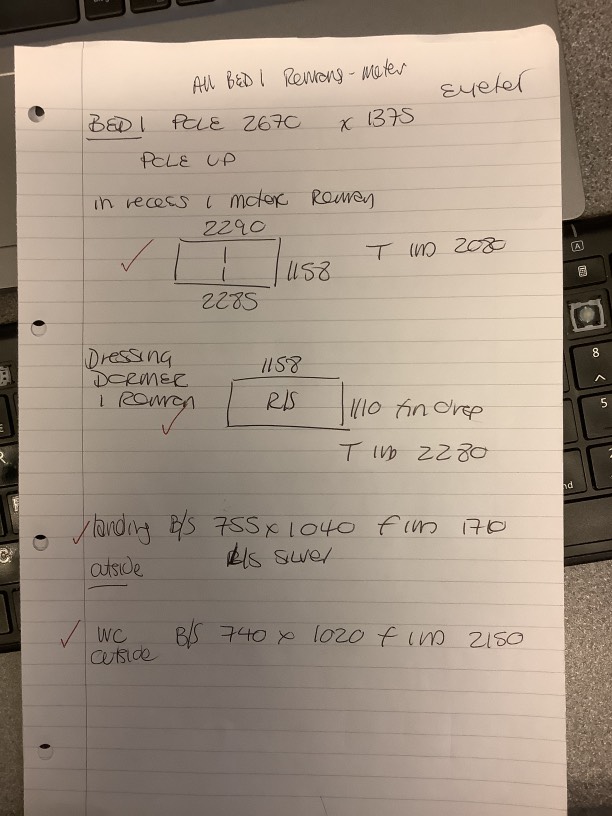 All BED 1 Romans - motor
Eyelet
BED 1 POLE 2670 x 1375
POLE UP
in recess 1 motor Roman
2290
1158 T IID 2080
2285
Dressing 1158
DORMER
1 Roman R/S 1110 fin drop
T IID 2280
landing B/S 755 x 1040 f IID
outside R/S silver
WC B/S 740 x 1020 f IID 2150
outside
A
8
5